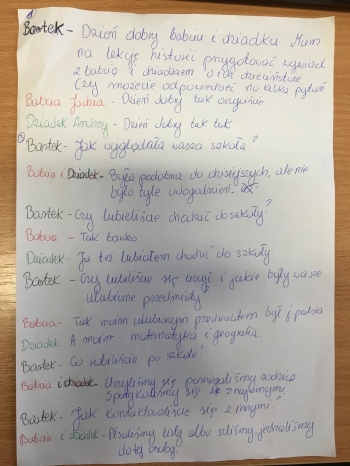 Bartek - Dzień dobry babciu i dziadku. Mam
na lekcję historii przygotować wywiad
z babcią i dziadkiem o ich dzieciństwie
Czy możecie odpowiedzieć na kilka pytań
Babcia - Dzień dobry tak oczywiście
Dziadek Andrzej - Dzień dobry tak tak
Bartek - Jak wyglądała wasza szkoła?
Babcia i Dziadek - Była podobna do dzisiejszych, ale nie
było tyle udogodnień.
Bartek - Czy lubieliście chodzić do szkoły?
Babcia - Tak bardzo
Dziadek - Ja też lubiałem chodzić do szkoły
Bartek - Czy lubiliście się uczyć i jakie były wasze
ulubione przedmioty?
Babcia - Tak moim ulubionym przedmiotem był j. polski
Dziadek A moim matematyka i geografia.
Bartek - Co robiliście po szkole?
Babcia i dziadek - Uczyliśmy się pomagaliśmy rodzicą
Spotykaliśmy się ze znajomymi.
Bartek - Jak kontaktowaliście się z innymi?
Babcia i dziadek - Pisaliśmy listy albo szliśmy, jechaliśmy
do tej osoby.